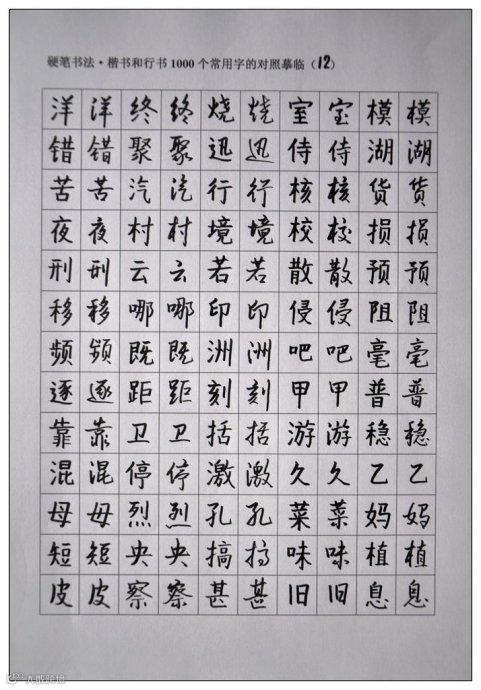 硬笔书法·楷书和行书1000个常用字的对照摹临（12）
洋 洋 终 终 烧 烧 室 室 模 模
错 错 聚 聚 迅 迅 侍 侍 湖 湖
苦 苦 汽 汽 行 行 核 核 货 货
夜 夜 村 村 境 境 校 校 损 损
刑 刑 云 云 若 若 散 散 预 预
移 移 哪 哪 印 印 侵 侵 阻 阻
频 频 既 既 洲 洲 吧 吧 毫 毫
逐 逐 距 距 刻 刻 甲 甲 普 普
靠 靠 卫 卫 括 括 游 游 稳 稳
混 混 停 停 激 激 久 久 乙 乙
母 母 烈 烈 孔 孔 菜 菜 妈 妈
短 短 央 央 搞 搞 味 味 植 植
皮 皮 察 察 甚 甚 旧 旧 息 息